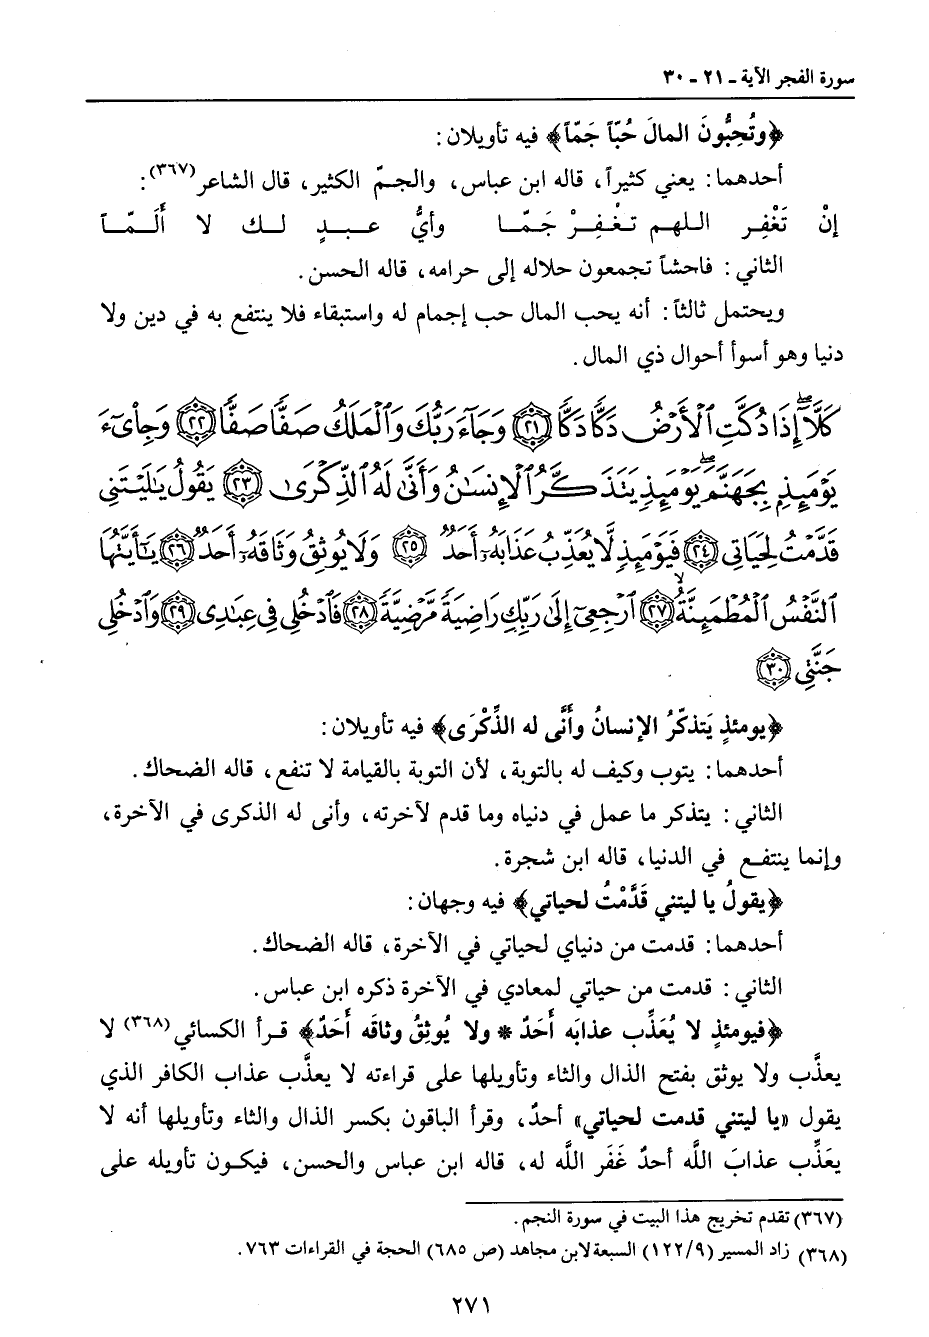 سورة الفجر الآية ـ ٢١ ـ ٣٠
﴿وتُحِبُّونَ المالَ حُبّاً جَمّاً﴾ فيه تأويلان:
أحدهما: يعني كثيراً، قاله ابن عباس، والجمّ الكثير، قال الشاعر(٣٦٧):
إنْ تَغْفِر اللهم تغْفِرْ جَمَّا وأيُّ عبدٍ لك لا أَلَمَّا
الثاني: فاحشاً تجمعون حلاله إلى حرامه، قاله الحسن.
ويحتمل ثالثاً: أنه يحب المال حب إجمام له واستبقاء فلا ينتفع به في دين ولا
دنيا وهو أسوأ أحوال ذي المال.
كَلَّآ إِذَا دُكَّتِ ٱلْأَرْضُ دَكًّا دَكًّا ٢١ وَجَآءَ رَبُّكَ وَٱلْمَلَكُ صَفًّا صَفًّا ٢٢ وَجِا۟ىٓءَ
يَوْمَئِذٍۭ بِجَهَنَّمَ يَوْمَئِذٍ يَتَذَكَّرُ ٱلْإِنسَٰنُ وَأَنَّىٰ لَهُ ٱلذِّكْرَىٰ ٢٣ يَقُولُ يَٰلَيْتَنِى
قَدَّمْتُ لِحَيَاتِى ٢٤ فَيَوْمَئِذٍ لَّا يُعَذِّبُ عَذَابَهُۥٓ أَحَدٌ ٢٥ وَلَا يُوثِقُ وَثَاقَهُۥٓ أَحَدٌ ٢٦ يَٰٓأَيَّتُهَا
ٱلنَّفْسُ ٱلْمُطْمَئِنَّةُ ٢٧ ٱرْجِعِىٓ إِلَىٰ رَبِّكِ رَاضِيَةً مَّرْضِيَّةً ٢٨ فَٱدْخُلِى فِى عِبَٰدِى ٢٩ وَٱدْخُلِى
جَنَّتِى ٣٠
﴿يومئذٍ يَتذكّرُ الإنسانُ وأَنَّى له الذِّكْرَى﴾ فيه تأويلان:
أحدهما: يتوب وكيف له بالتوبة، لأن التوبة بالقيامة لا تنفع، قاله الضحاك.
الثاني: يتذكر ما عمل في دنياه وما قدم لآخرته، وأنى له الذكرى في الآخرة،
وإنما ينتفع في الدنيا، قاله ابن شجرة.
﴿يقولُ يا ليتني قَدَّمْتُ لحياتي﴾ فيه وجهان:
أحدهما: قدمت من دنياي لحياتي في الآخرة، قاله الضحاك.
الثاني: قدمت من حياتي لمعادي في الآخرة ذكره ابن عباس.
﴿فيومئذٍ لا يُعَذِّب عذابَه أَحَدٌ * ولا يُوثِقُ وثاقَه أَحَدٌ﴾ قرأ الكسائي(٣٦٨) لا
يعذَّب ولا يوثق بفتح الذال والثاء وتأويلها على قراءته لا يعذَّب عذاب الكافر الذي
يقول «يا ليتني قدمت لحياتي» أحدٌ، وقرأ الباقون بكسر الذال والثاء وتأويلها أنه لا
يعَذِّب عذابَ اللَّه أحدٌ غَفَر اللَّه له، قاله ابن عباس والحسن، فيكون تأويله على
(٣٦٧) تقدم تخريج هذا البيت في سورة النجم.
(٣٦٨) زاد المسير (١٢٢/٩) السبعة لابن مجاهد (ص ٦٨٥) الحجة في القراءات ٧٦٣.
٢٧١